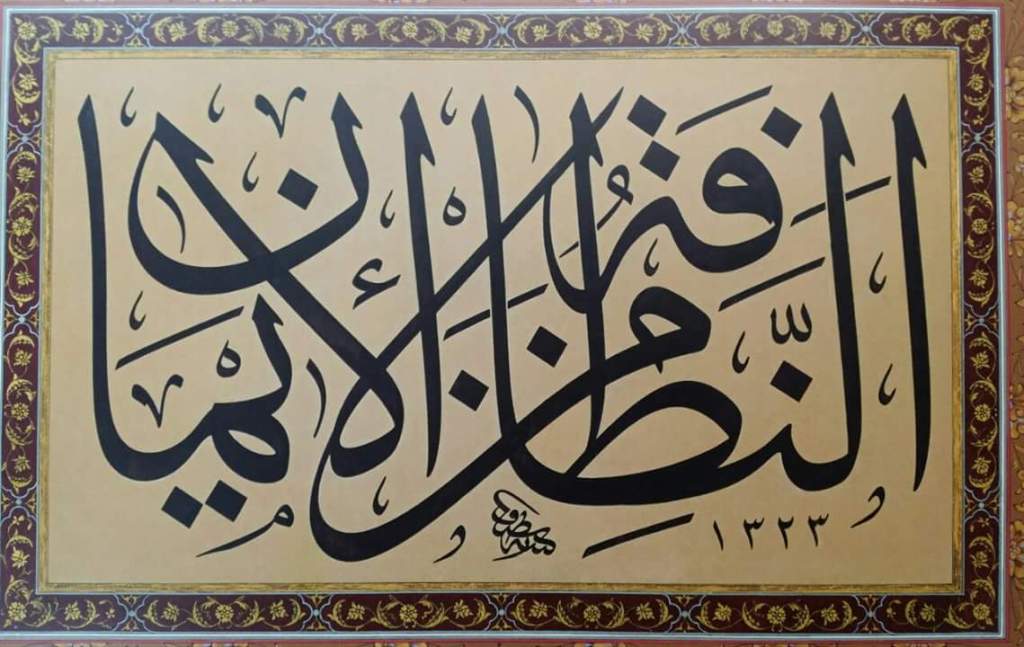 النَّظَافَةُ مِنَ الْإِيمَانِ
١٣٢٣